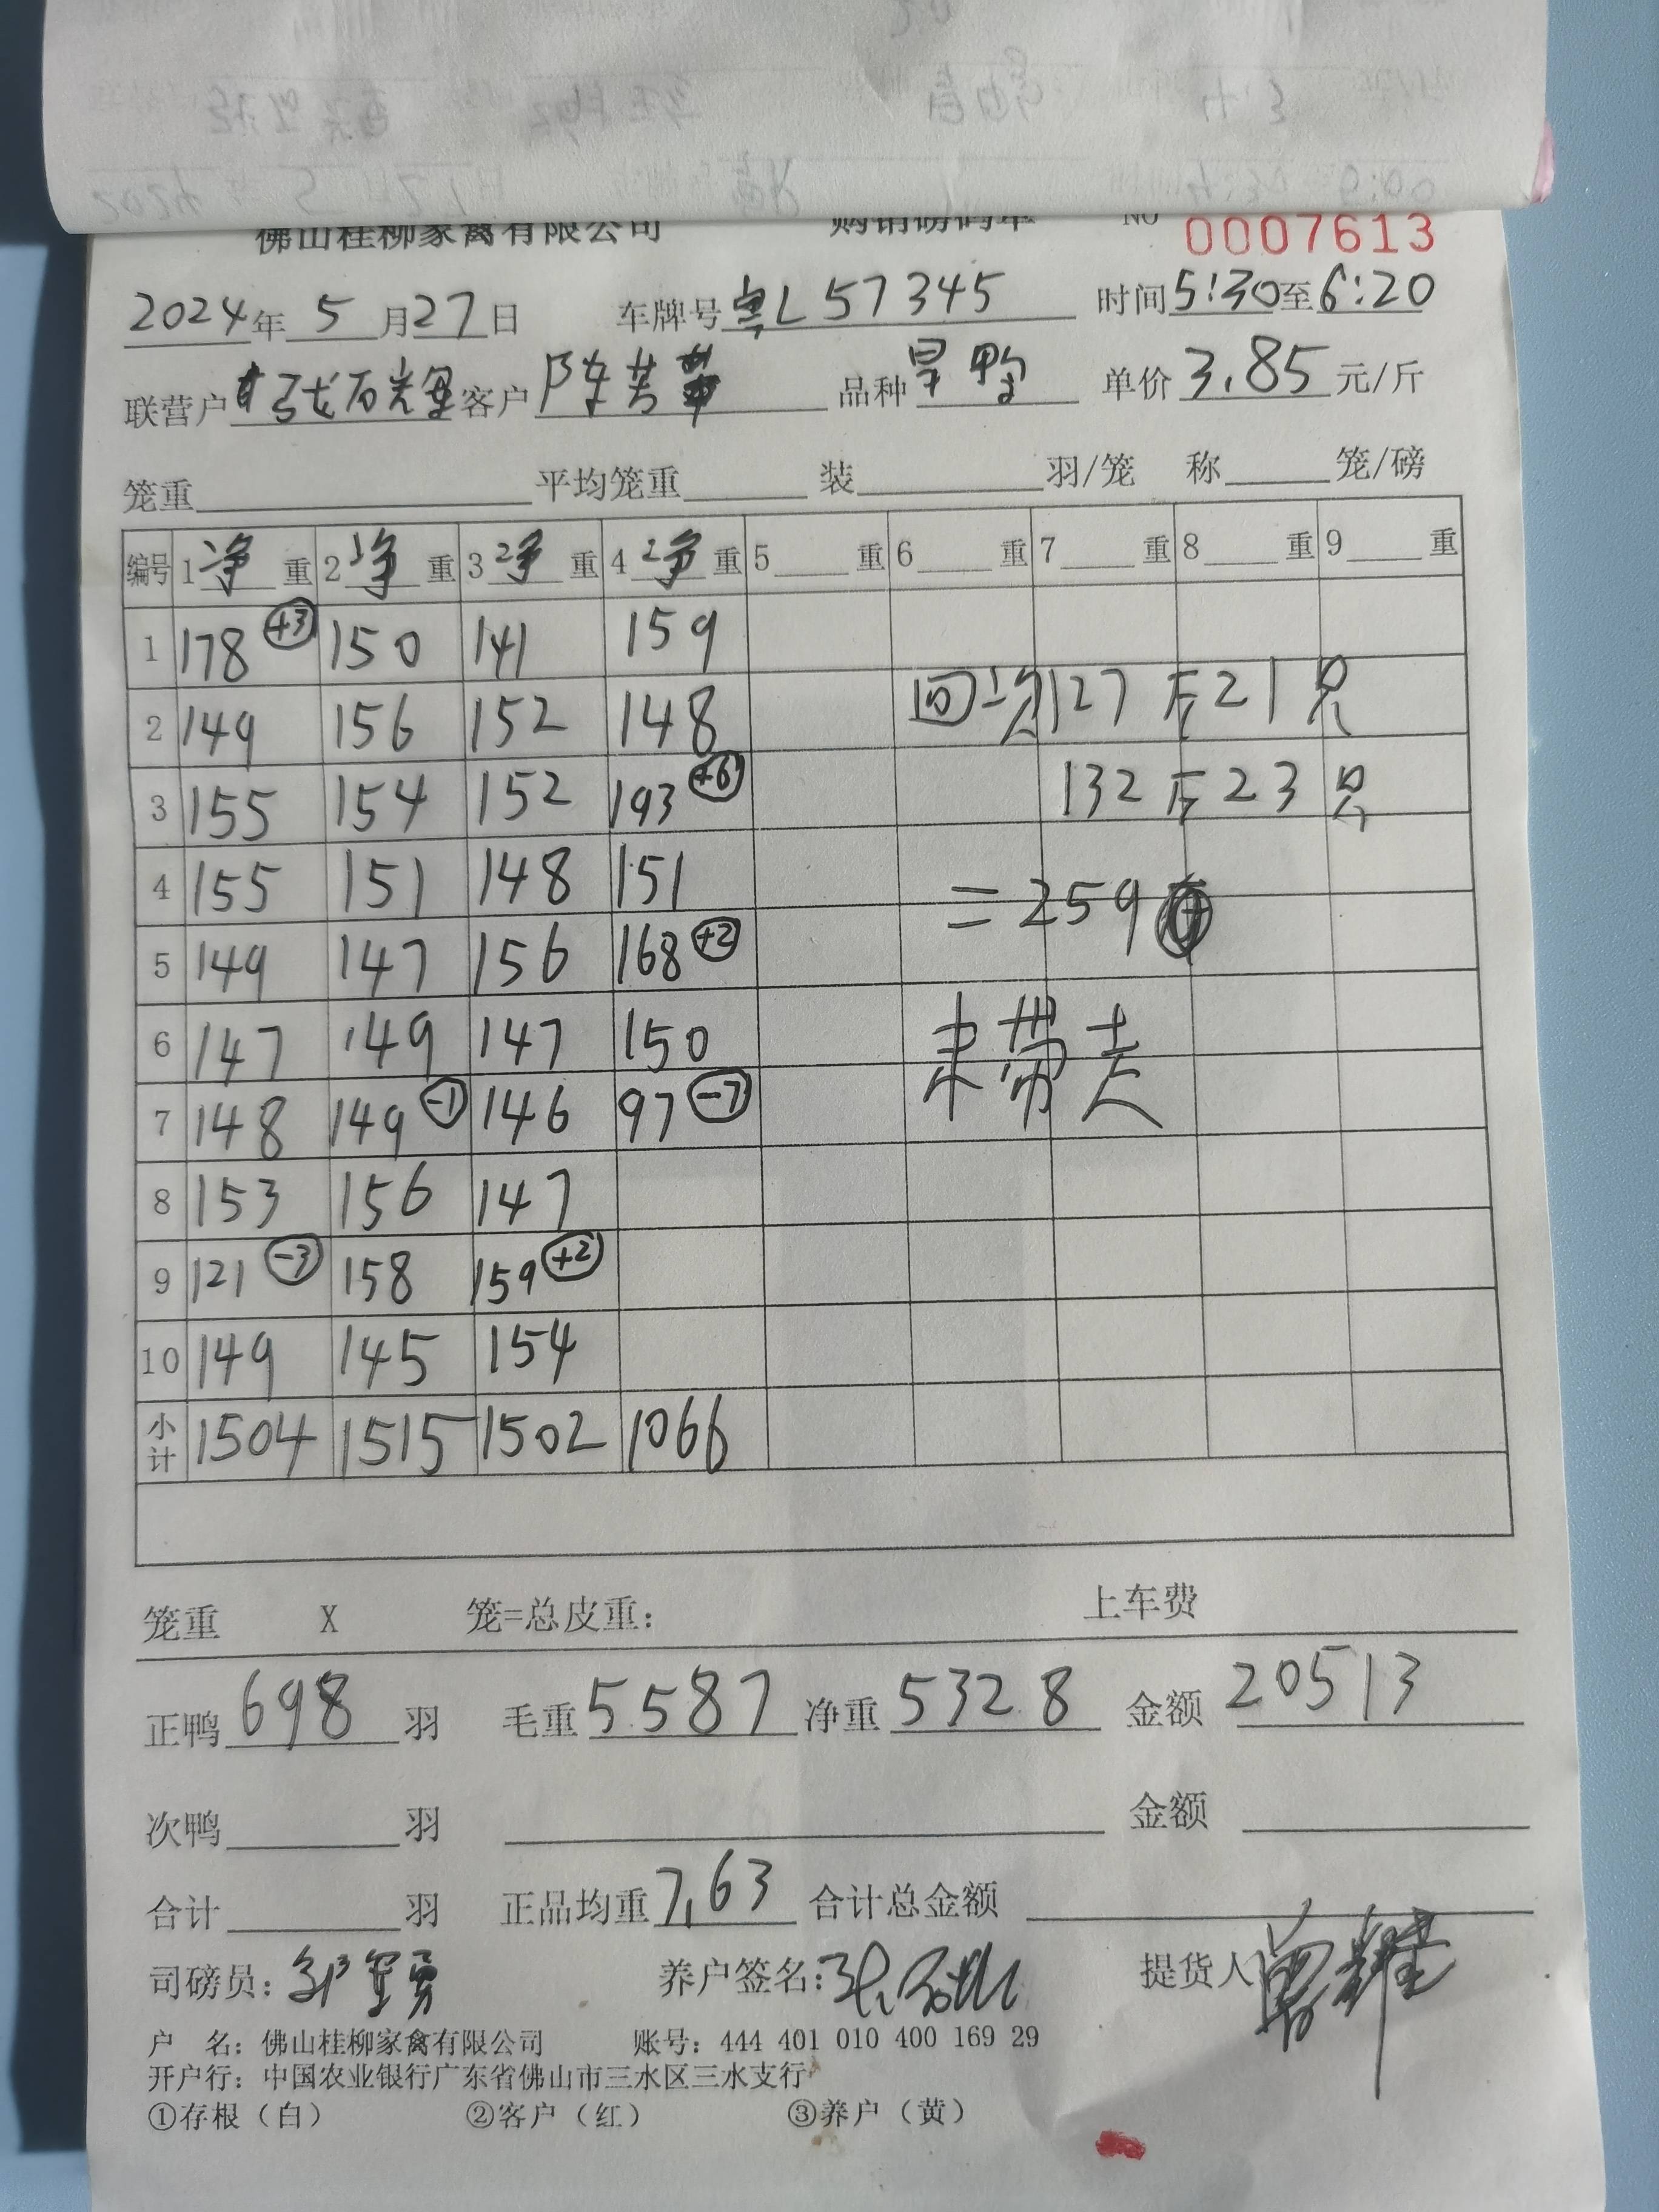 佛山桂柳家禽有限公司 购销磅码单 NO 0007613
2024年 5 月27日 车牌号 粤L57345 时间5:30至6:20
联营户 客户 陈 品种 旱鸭 单价 3.85 元/斤
笼重 平均笼重 装 羽/笼 称 笼/磅
编号 1 净 重 2 净 重 3 净 重 4 净 重 5 重 6 重 7 重 8 重 9 重
1 178 +3 150 141 159
2 149 156 152 148 回次 127斤21只
3 155 154 152 193 +6 132斤23只
4 155 151 148 151 =259
5 149 147 156 168 +2
6 147 149 147 150 未带走
7 148 149 -1 146 97 -7
8 153 156 147
9 121 -3 158 159 +2
10 149 145 154
小计 1504 1515 1502 1066
笼重 X 笼=总皮重: 上车费
正鸭 698 羽 毛重 5587 净重 5328 金额 20513
次鸭 羽 金额
合计 羽 正品均重 7.63 合计总金额
司磅员: 养户签名: 提货人
户 名: 佛山桂柳家禽有限公司 账号: 444 401 010 400 169 29
开户行: 中国农业银行广东省佛山市三水区三水支行
①存根(白) ②客户(红) ③养户(黄)